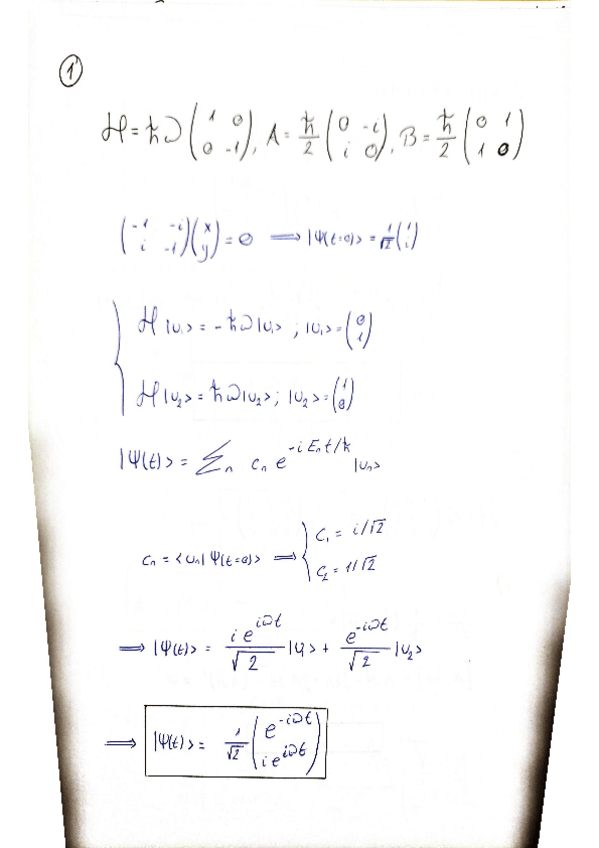 1
H = ħω ( 1 0 ; 0 -1 ), A = ħ/2 ( 0 -i ; i 0 ), B = ħ/2 ( 0 1 ; 1 0 )
( -1 -i ; i -1 ) ( x ; y ) = 0 ⟹ |Ψ(t=0)> = 1/√2 ( 1 ; i )
H |u₁> = -ħω |u₁> ; |u₁> = ( 0 ; 1 )
H |u₂> = ħω |u₂> ; |u₂> = ( 1 ; 0 )
|Ψ(t)> = Σₙ cₙ e^{-i Eₙ t/ħ} |uₙ>
cₙ = <uₙ| Ψ(t=0)> ⟹ { c₁ = i/√2
c₂ = 1/√2
⟹ |Ψ(t)> = i e^{iωt}/√2 |u₁> + e^{-iωt}/√2 |u₂>
⟹ |Ψ(t)> = 1/√2 ( e^{-iωt} ; i e^{iωt} )